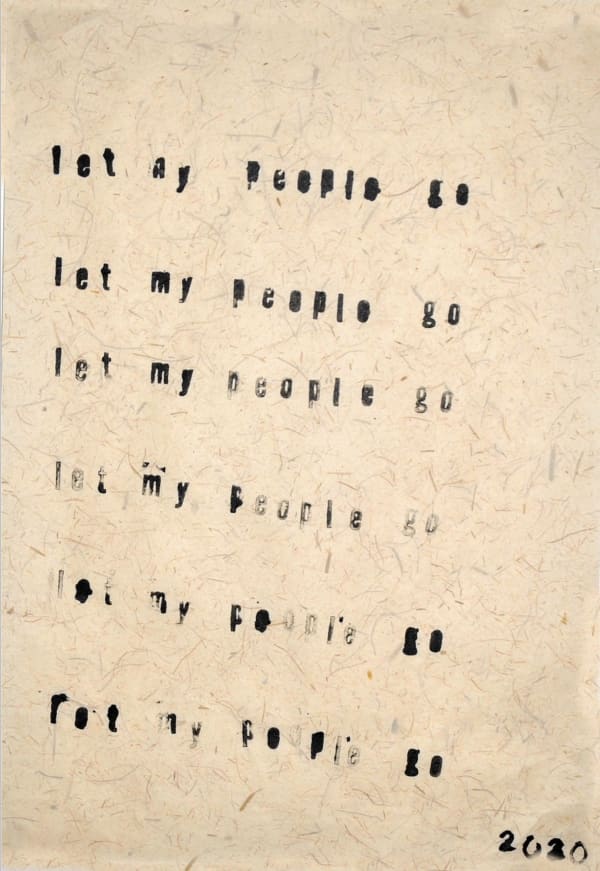 let my people go
let my people go
let my people go
let my people go
let my people go
let my people go
2020